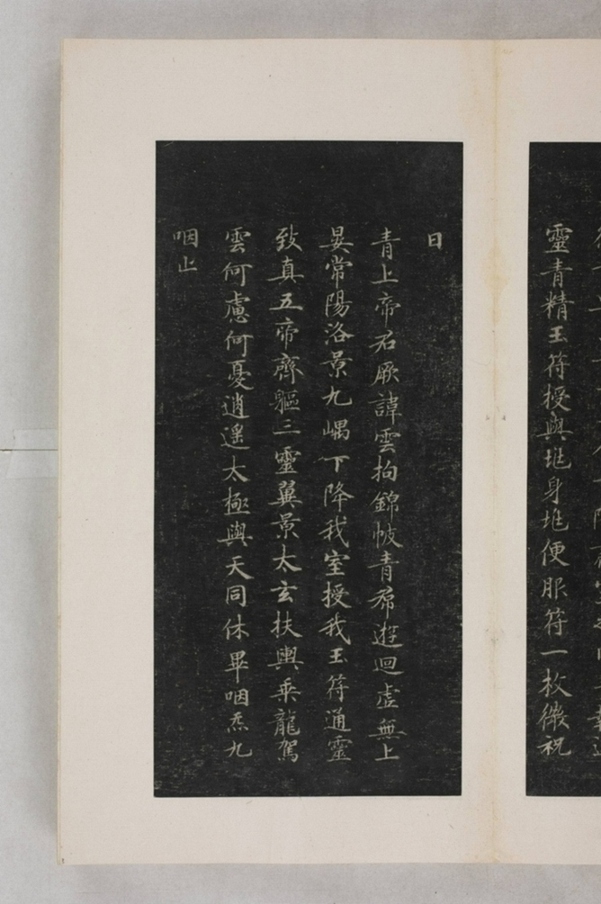 靈青精玉符授與某身某便服符一枚微祝
日
青上帝君厥諱雲拘錦帔青帬遊迴虛無上
晏常陽洛景九嵎下降我室授我玉符通靈
致真五帝齊軀三靈翼景太玄扶轝乘龍駕
雲何慮何憂逍遙太極與天同休畢咽炁九
咽止